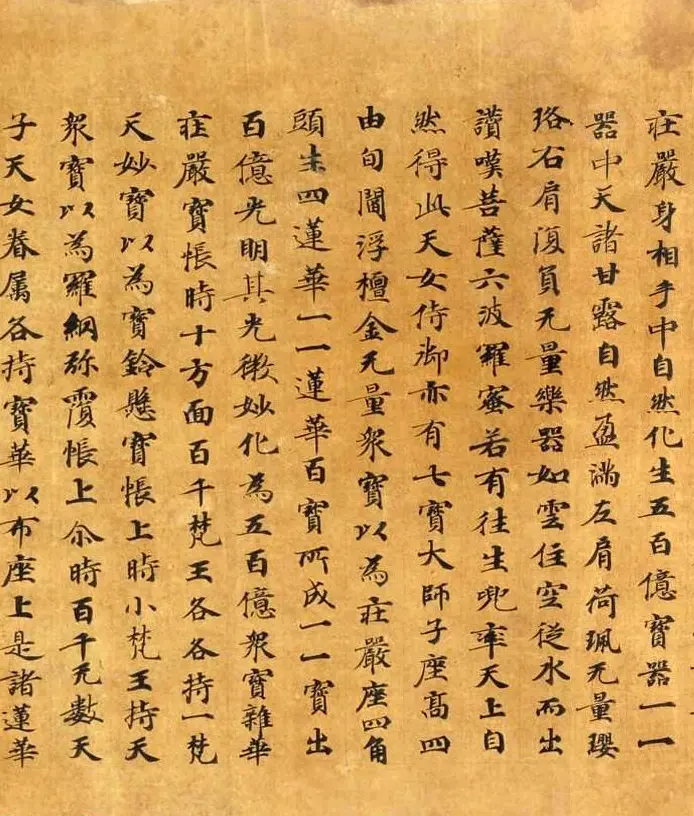 莊嚴身相手中自然化生五百億寶器一一
器中天諸甘露自然盈滿左肩荷珮无量瓔
珞右肩復負无量樂器如雲住空從水而出
讚嘆菩薩六波羅蜜若有往生兜率天上自
然得此天女侍御亦有七寶大師子座高四
由旬閻浮檀金无量衆寶以為莊嚴座四角
頭生四蓮華一一蓮華百寶所成一一寶出
百億光明其光微妙化為五百億衆寶雜華
莊嚴寶帳時十方面百千梵王各各持一梵
天妙寶以為寶鈴懸寶帳上時小梵王持天
衆寶以為羅網弥覆帳上尒時百千无數天
子天女眷属各持寶華以布座上是諸蓮華